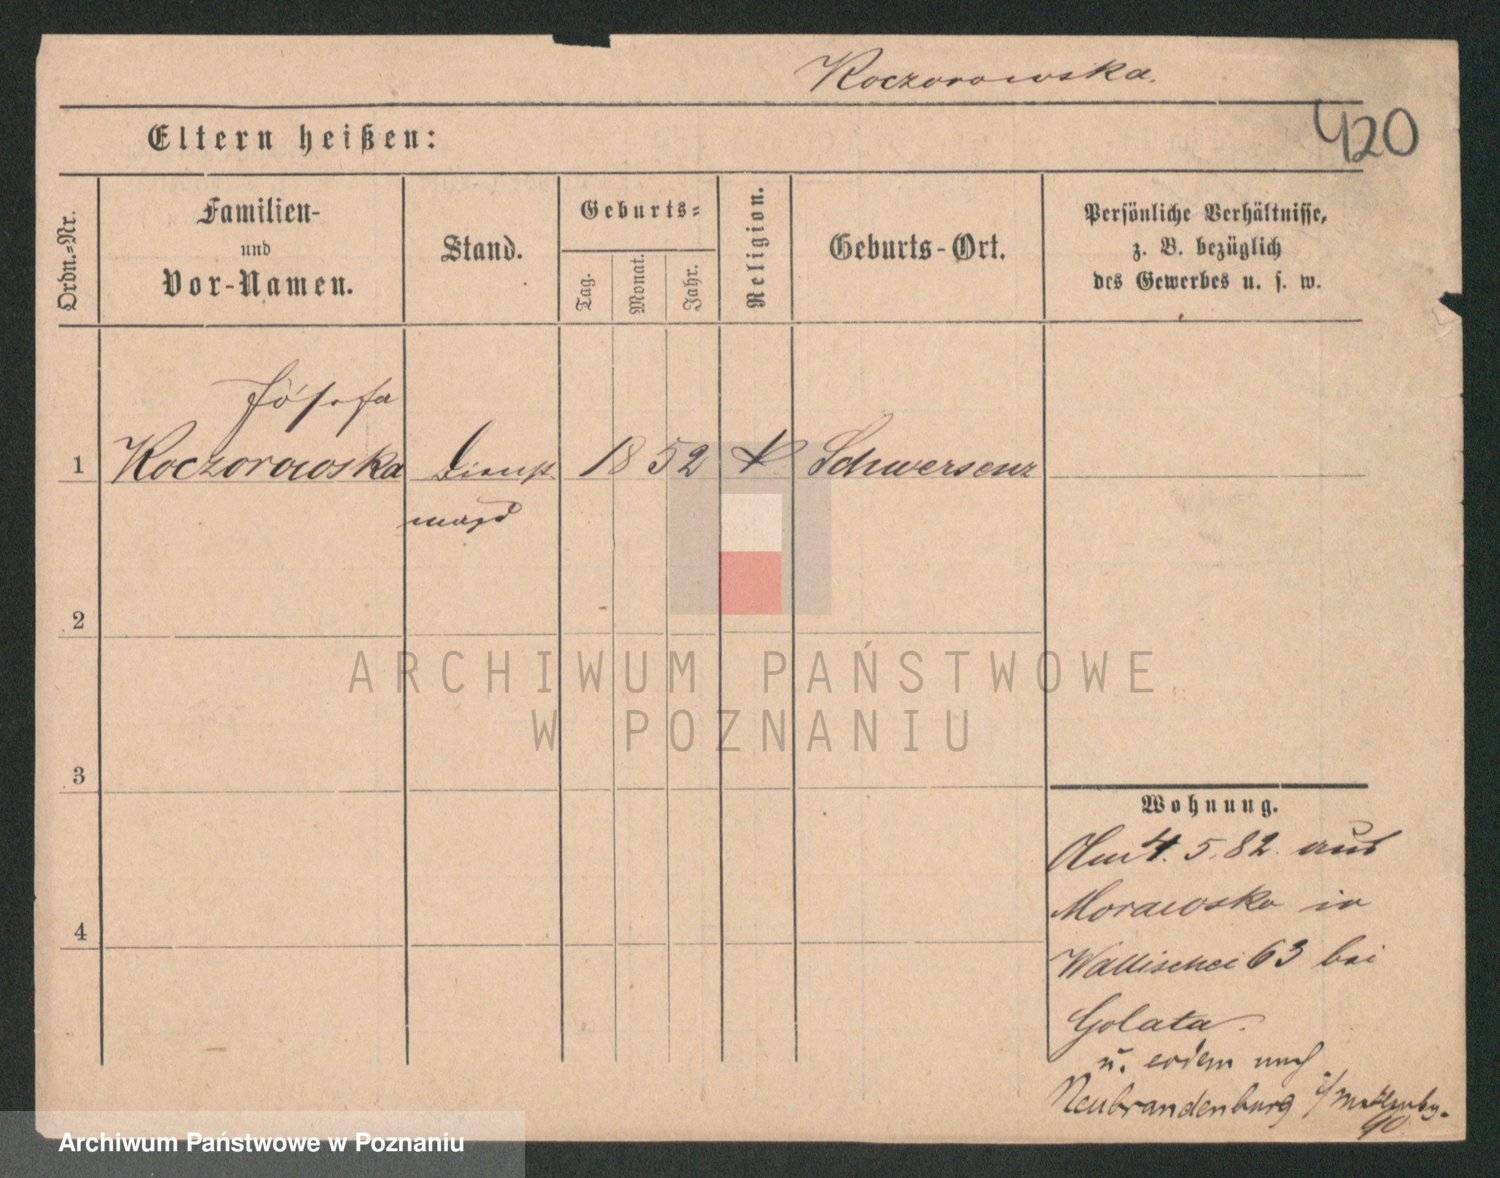 Koczorowska.
420
Eltern heißen:
Ordn.-Nr.
Familien-
und
Vor-Namen.
Stand.
Geburts-
Tag.
Monat.
Jahr.
Religion.
Geburts-Ort.
Persönliche Verhältnisse,
z. B. bezüglich
des Gewerbes u. s. w.
Józefa
1 Koczorowska Dienst 1852 k Schwersenz
magd
2
3
4
Wohnung.
Am 4. 5. 82. aus
Morawsko in
Wallischei 63 bei
Golata.
u. nach
Neubrandenburg i/
90
ARCHIWUM PAŃSTWOWE
W POZNANIU
Archiwum Państwowe w Poznaniu